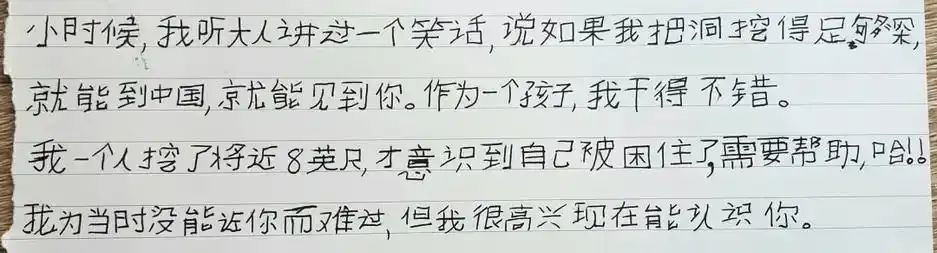 小时候,我听大人讲过一个笑话,说如果我把洞挖得足够深,
就能到中国,就能见到你。作为一个孩子,我干得不错。
我一个人挖了将近8英尺,才意识到自己被困住了,需要帮助,哈!!
我为当时没能近你而难过,但我很高兴现在能认识你。